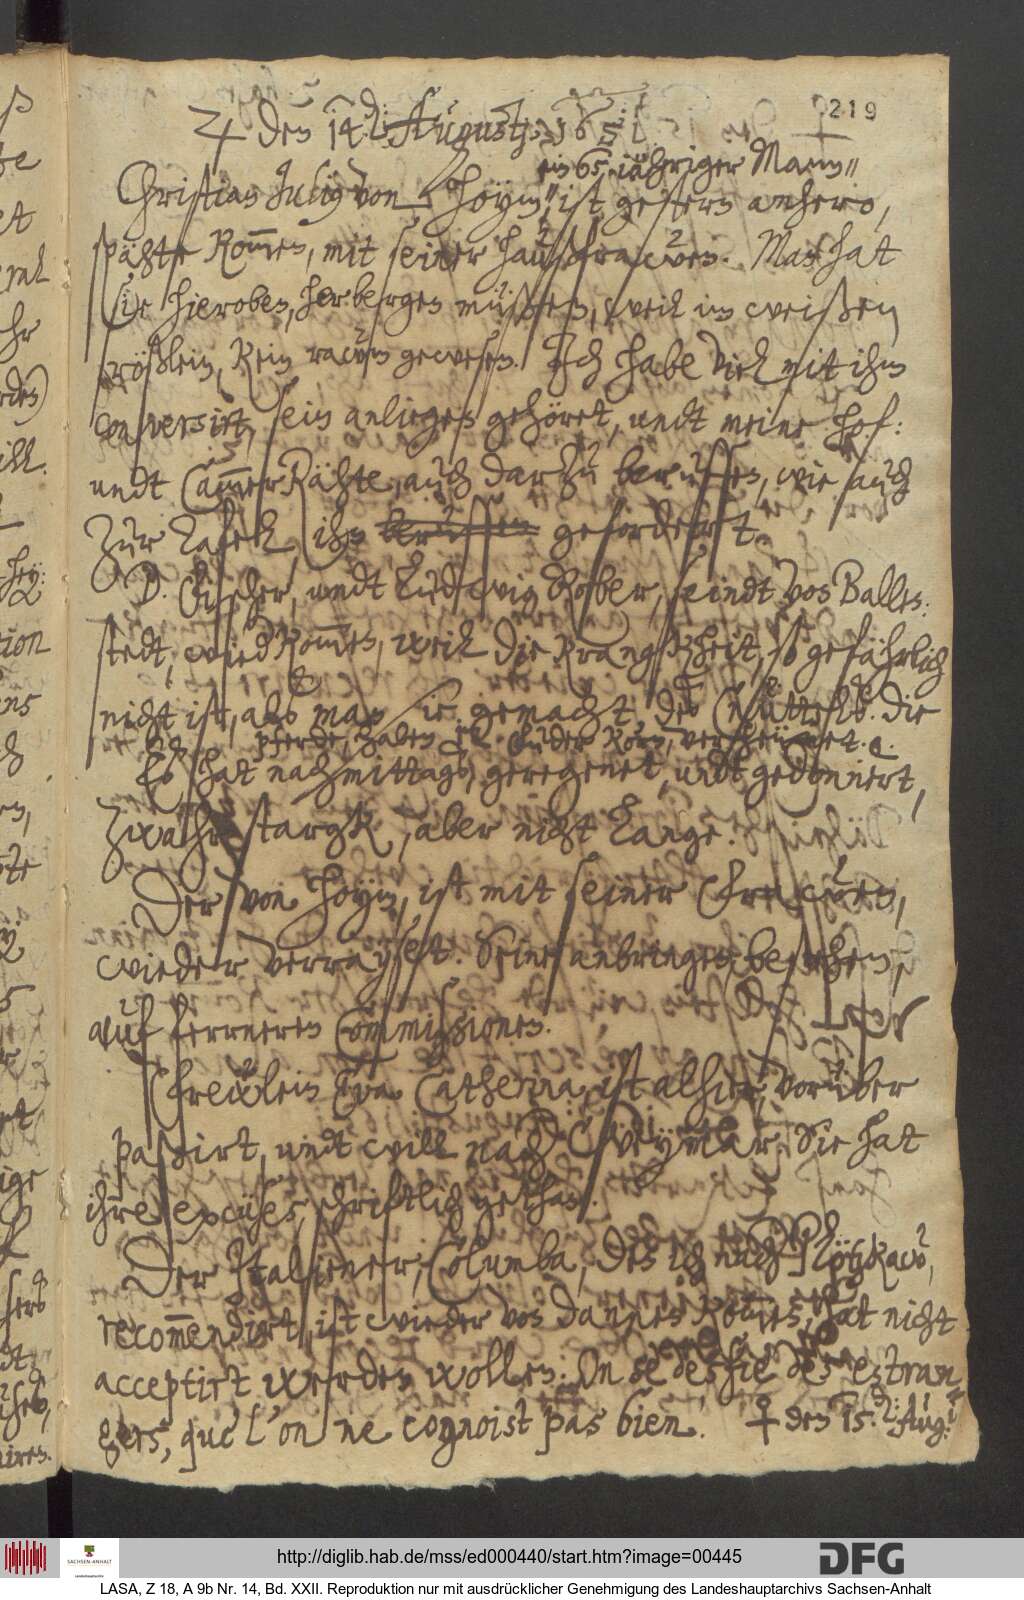 219
♃ den 14. d: Augustj: 1651
ein 65 iähriger Mann
Christian Julius von Hoym, ist gestern anhero,
späht Kommen, mit seiner haußfrawen. Man hat
Sie hieroben, herbergen müßen, weil im weißen
rößlein, Kein rawm gewesen. Jch habe viel mit ihm
conversirt, sein anliegen gehöret, undt meine hof:
undt CammerRähte, auch darzu beruffen, wie auch
zur Tafel, ihn beruffen gefordert.
D. Fischer, undt Ludwig Rober, seindt von Ballen:
stedt, wied Kommen, weil die Krangkheit, so gefährlich
nicht ist, als man sie gemacht, des Chuttelbs. die
pferde, haben sich in der Rora, verscheumet. &.
Es hat nachmittags, geregenet, undt gedonnert,
zwahr stargk, aber nicht lange.
Der von Hoym, ist mit seiner Frawen,
wieder verrayset. Seine anbringen, bestehen,
auf ferneren Commissionen.
Frewlein Eva Catherina, ist alhier, vorüber
passirt, undt will nach Weymar. Sie hat
ihre excuses, schriftlich gethan.
Der Jtaliener, Columba, den ich nach Plötzkaw,
recommendirt, ist wieder von dannen Kommen, hat nicht
acceptirt werden wollen. On se desfie des estran
gers, que l'on ne cognoist pas bien. ♀ den 15. d: Aug:
http://diglib.hab.de/mss/ed000440/start.htm?image=00445
SACHSEN-ANHALT
DFG
LASA, Z 18, A 9b Nr. 14, Bd. XXII. Reproduktion nur mit ausdrücklicher Genehmigung des Landeshauptarchivs Sachsen-Anhalt